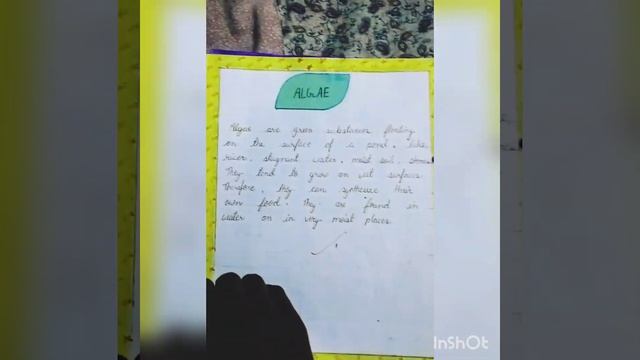 ALGAE
Algae are green substances floating
on the surface of a pond, lake,
river, stagnant water, moist soil, stones
They tend to grow on wet surfaces
Therefore, they can synthesize their
own food. They are found in
water on in very moist places
InShOt